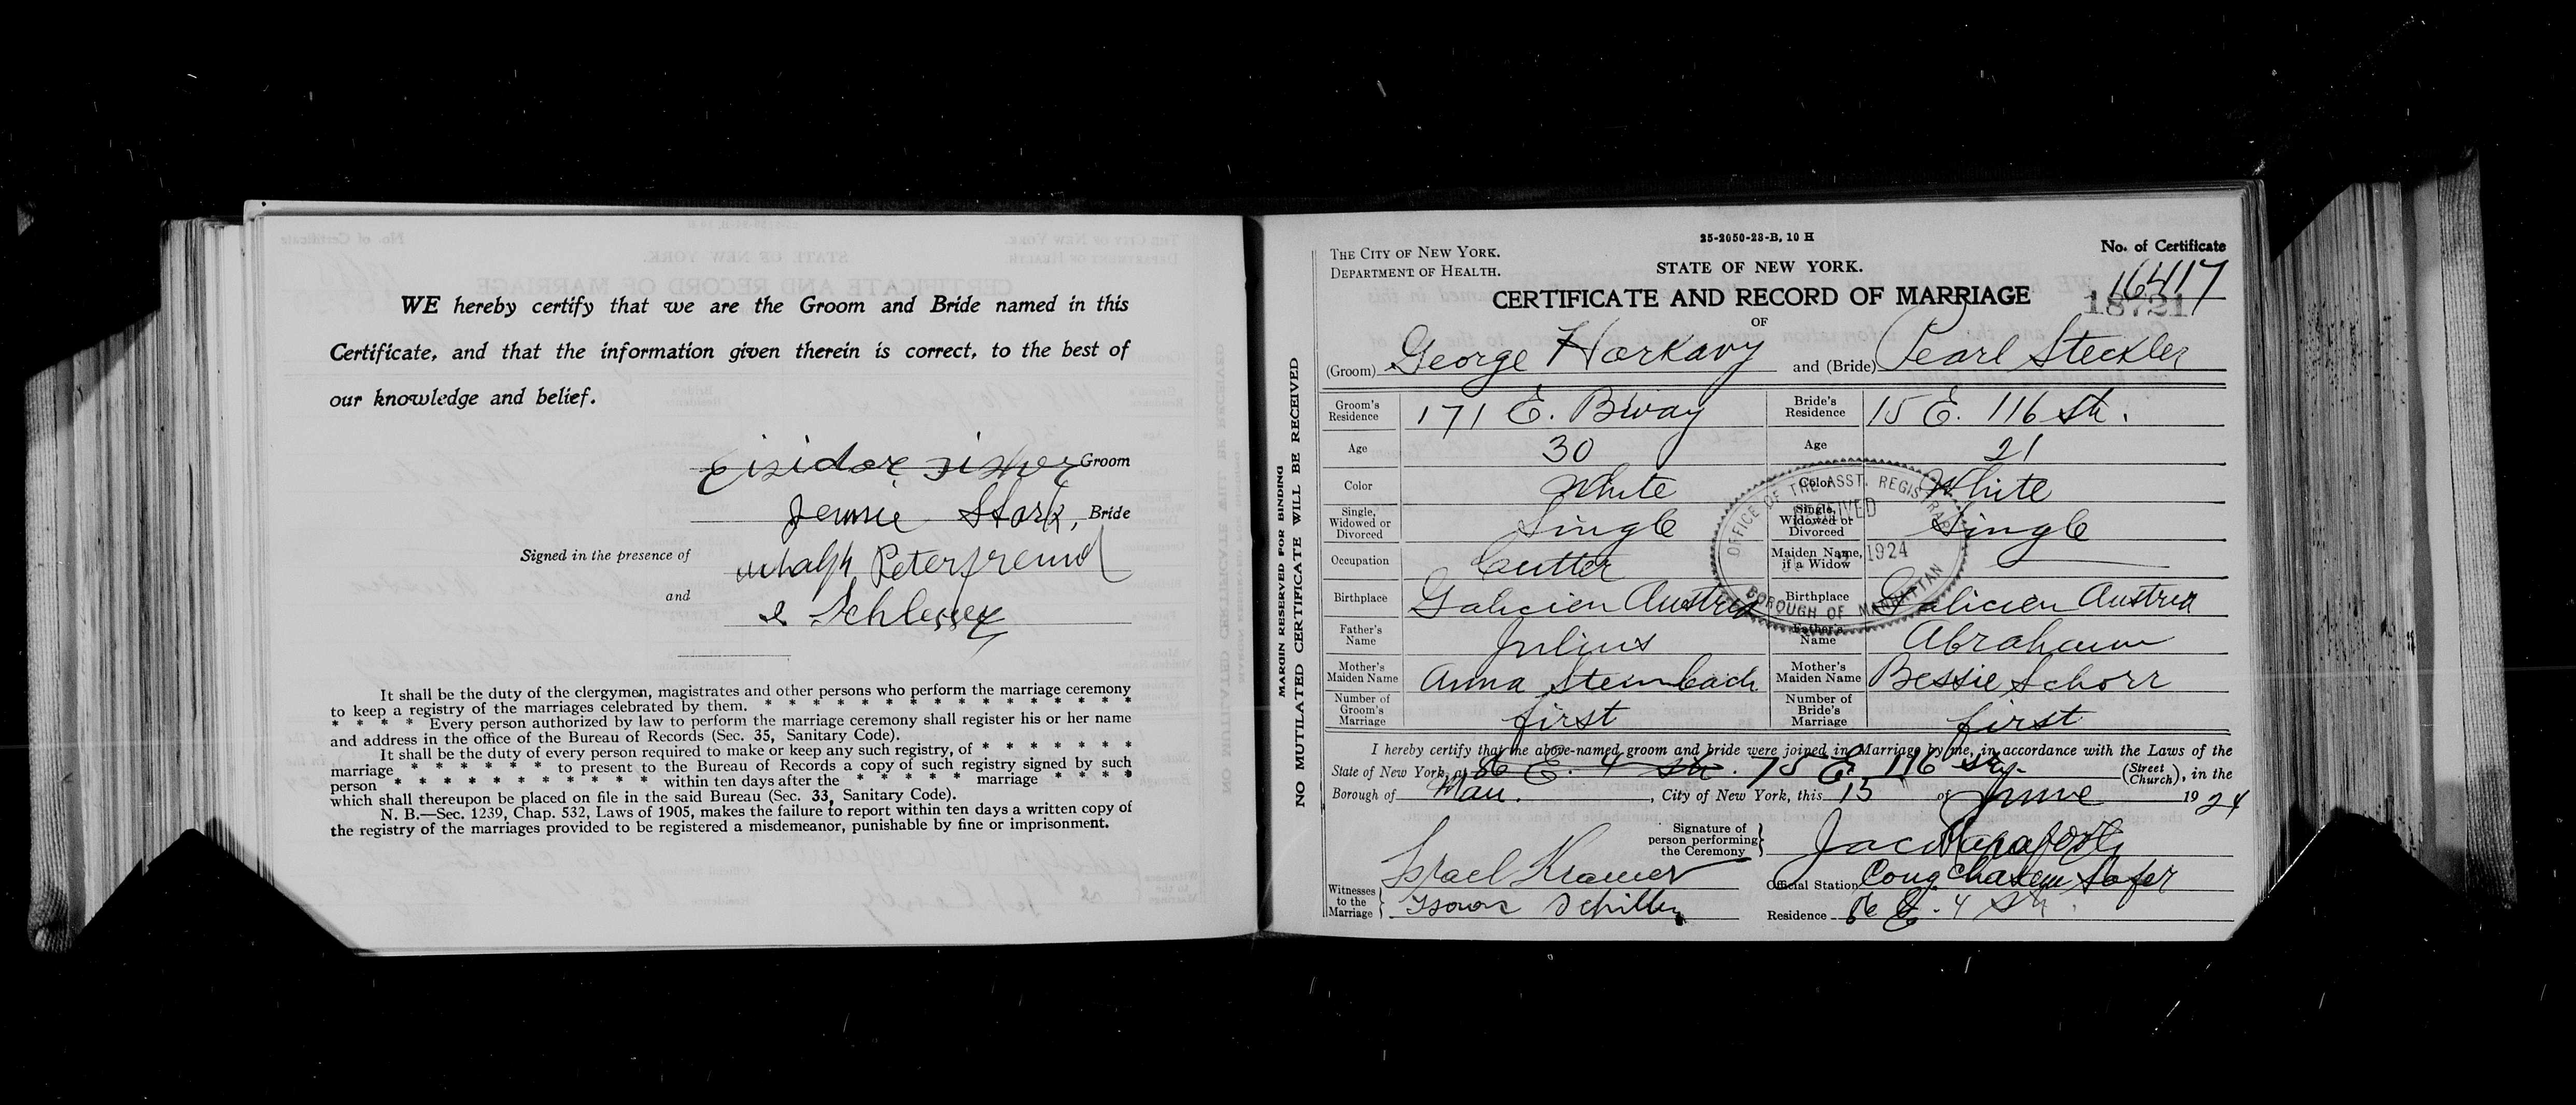 WE hereby certify that we are the Groom and Bride named in this
Certificate, and that the information given therein is correct, to the best of
our knowledge and belief.
Groom
Jennie Stark, Bride
Signed in the presence of Peterfreund
and Schlesser
It shall be the duty of the clergymen, magistrates and other persons who perform the marriage ceremony
to keep a registry of the marriages celebrated by them. * * * * * * * * * * * * *
* * * * Every person authorized by law to perform the marriage ceremony shall register his or her name
and address in the office of the Bureau of Records (Sec. 35, Sanitary Code).
It shall be the duty of every person required to make or keep any such registry, of * * * * * * *
marriage * * * * * * * to present to the Bureau of Records a copy of such registry signed by such
person * * * * * * * * * * * * within ten days after the * * * * * marriage * * * *
which shall thereupon be placed on file in the said Bureau (Sec. 33, Sanitary Code).
N. B.—Sec. 1239, Chap. 532, Laws of 1905, makes the failure to report within ten days a written copy of
the registry of the marriages provided to be registered a misdemeanor, punishable by fine or imprisonment.
MARGIN RESERVED FOR BINDING
NO MUTILATED CERTIFICATE WILL BE RECEIVED
25-2050-23-B, 10 H
THE CITY OF NEW YORK.
DEPARTMENT OF HEALTH.
STATE OF NEW YORK.
No. of Certificate
16417
18721
CERTIFICATE AND RECORD OF MARRIAGE
OF
(Groom) George Harkavy and (Bride) Pearl Steckler
Groom's Residence 171 E. Bway Bride's Residence 15 E. 116 St.
Age 30 Age 21
Color White Color White
Single, Widowed or Divorced Single Single, Widowed or Divorced Single
Occupation Cutter Maiden Name, if a Widow —
Birthplace Galicien Austria Birthplace Galicien Austria
Father's Name Julius Father's Name Abraham
Mother's Maiden Name Anna Steinbach Mother's Maiden Name Bessie Schorr
Number of Groom's Marriage first Number of Bride's Marriage first
OFFICE OF THE ASST. REGISTRAR
RECEIVED
1924
BOROUGH OF MANHATTAN
I hereby certify that the above-named groom and bride were joined in Marriage by me, in accordance with the Laws of the
State of New York, at 86 E. 4 St. 75 E. 116 St. (Street Church), in the
Borough of Man. , City of New York, this 15 of June 1924
Signature of person performing the Ceremony
Witnesses to the Marriage Israel Kramer
Official Station Cong Chasem Sofer
Residence 86 E. 4 St.